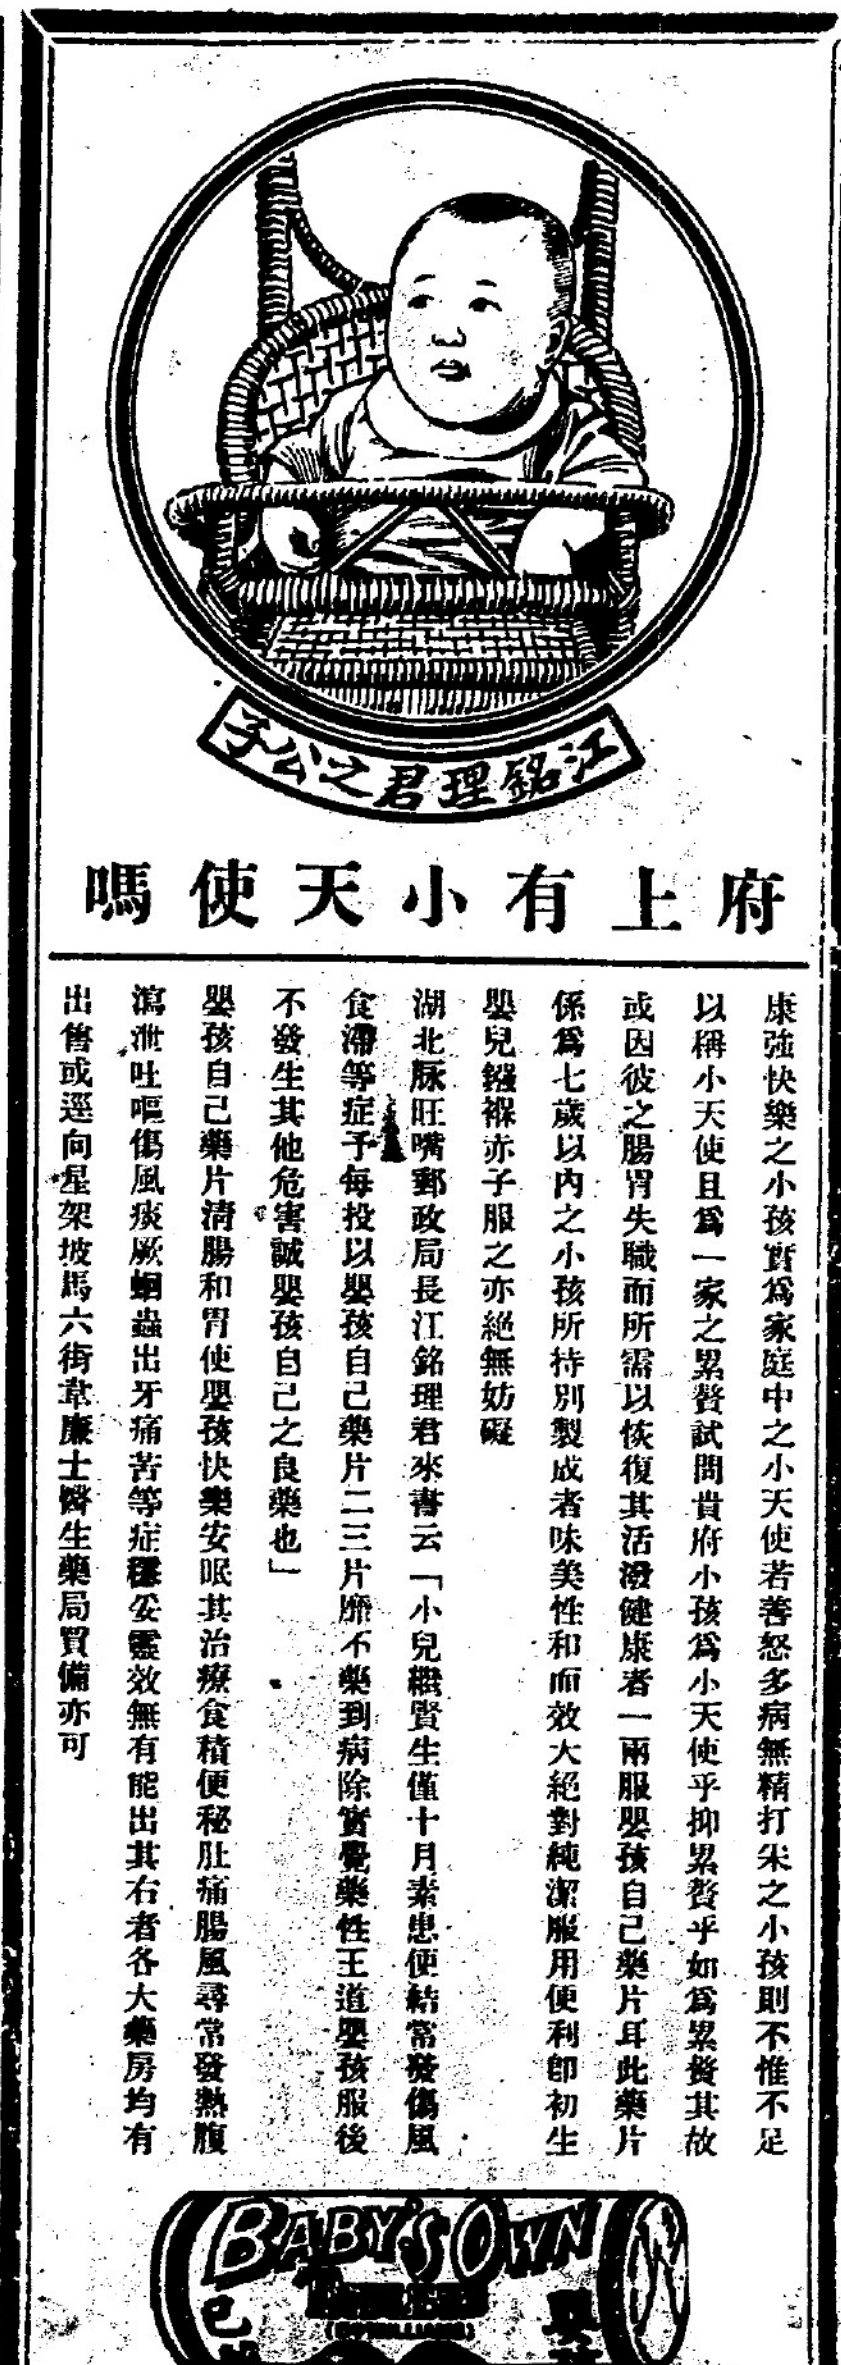 江銘理君之公子
府上有小天使嗎
康強快樂之小孩實爲家庭中之小天使若善怒多病無精打采之小孩則不惟不足
以稱小天使且爲一家之累贅試問貴府小孩爲小天使乎抑累贅乎如爲累贅其故
或因彼之腸胃失職而所需以恢復其活潑健康者一兩服嬰孩自己藥片耳此藥片
係爲七歲以內之小孩所持別製成者味美性和而效大絕對純潔服用便利卽初生
嬰兒襁褓亦子服之亦絕無妨礙
湖北脉旺嘴郵政局長江銘理君來書云「小兒繼賢生僅十月素患便結常發傷風
食滯等症予每投以嬰孩自己藥片二三片靡不藥到病除實覺藥性王道嬰孩服後
不發生其他危害誠嬰孩自己之良藥也」
嬰孩自己藥片清腸和胃使嬰孩快樂安眠其治療食積便秘肚痛腸風尋常發熱腹
瀉泄吐嘔傷風痰厥蛔蟲出牙痛苦等症穩妥靈效無有能出其右者各大藥房均有
出售或逕向星架坡馬六街韋廉士醫生藥局買備亦可
BABY'S OWN
自己
嬰孩